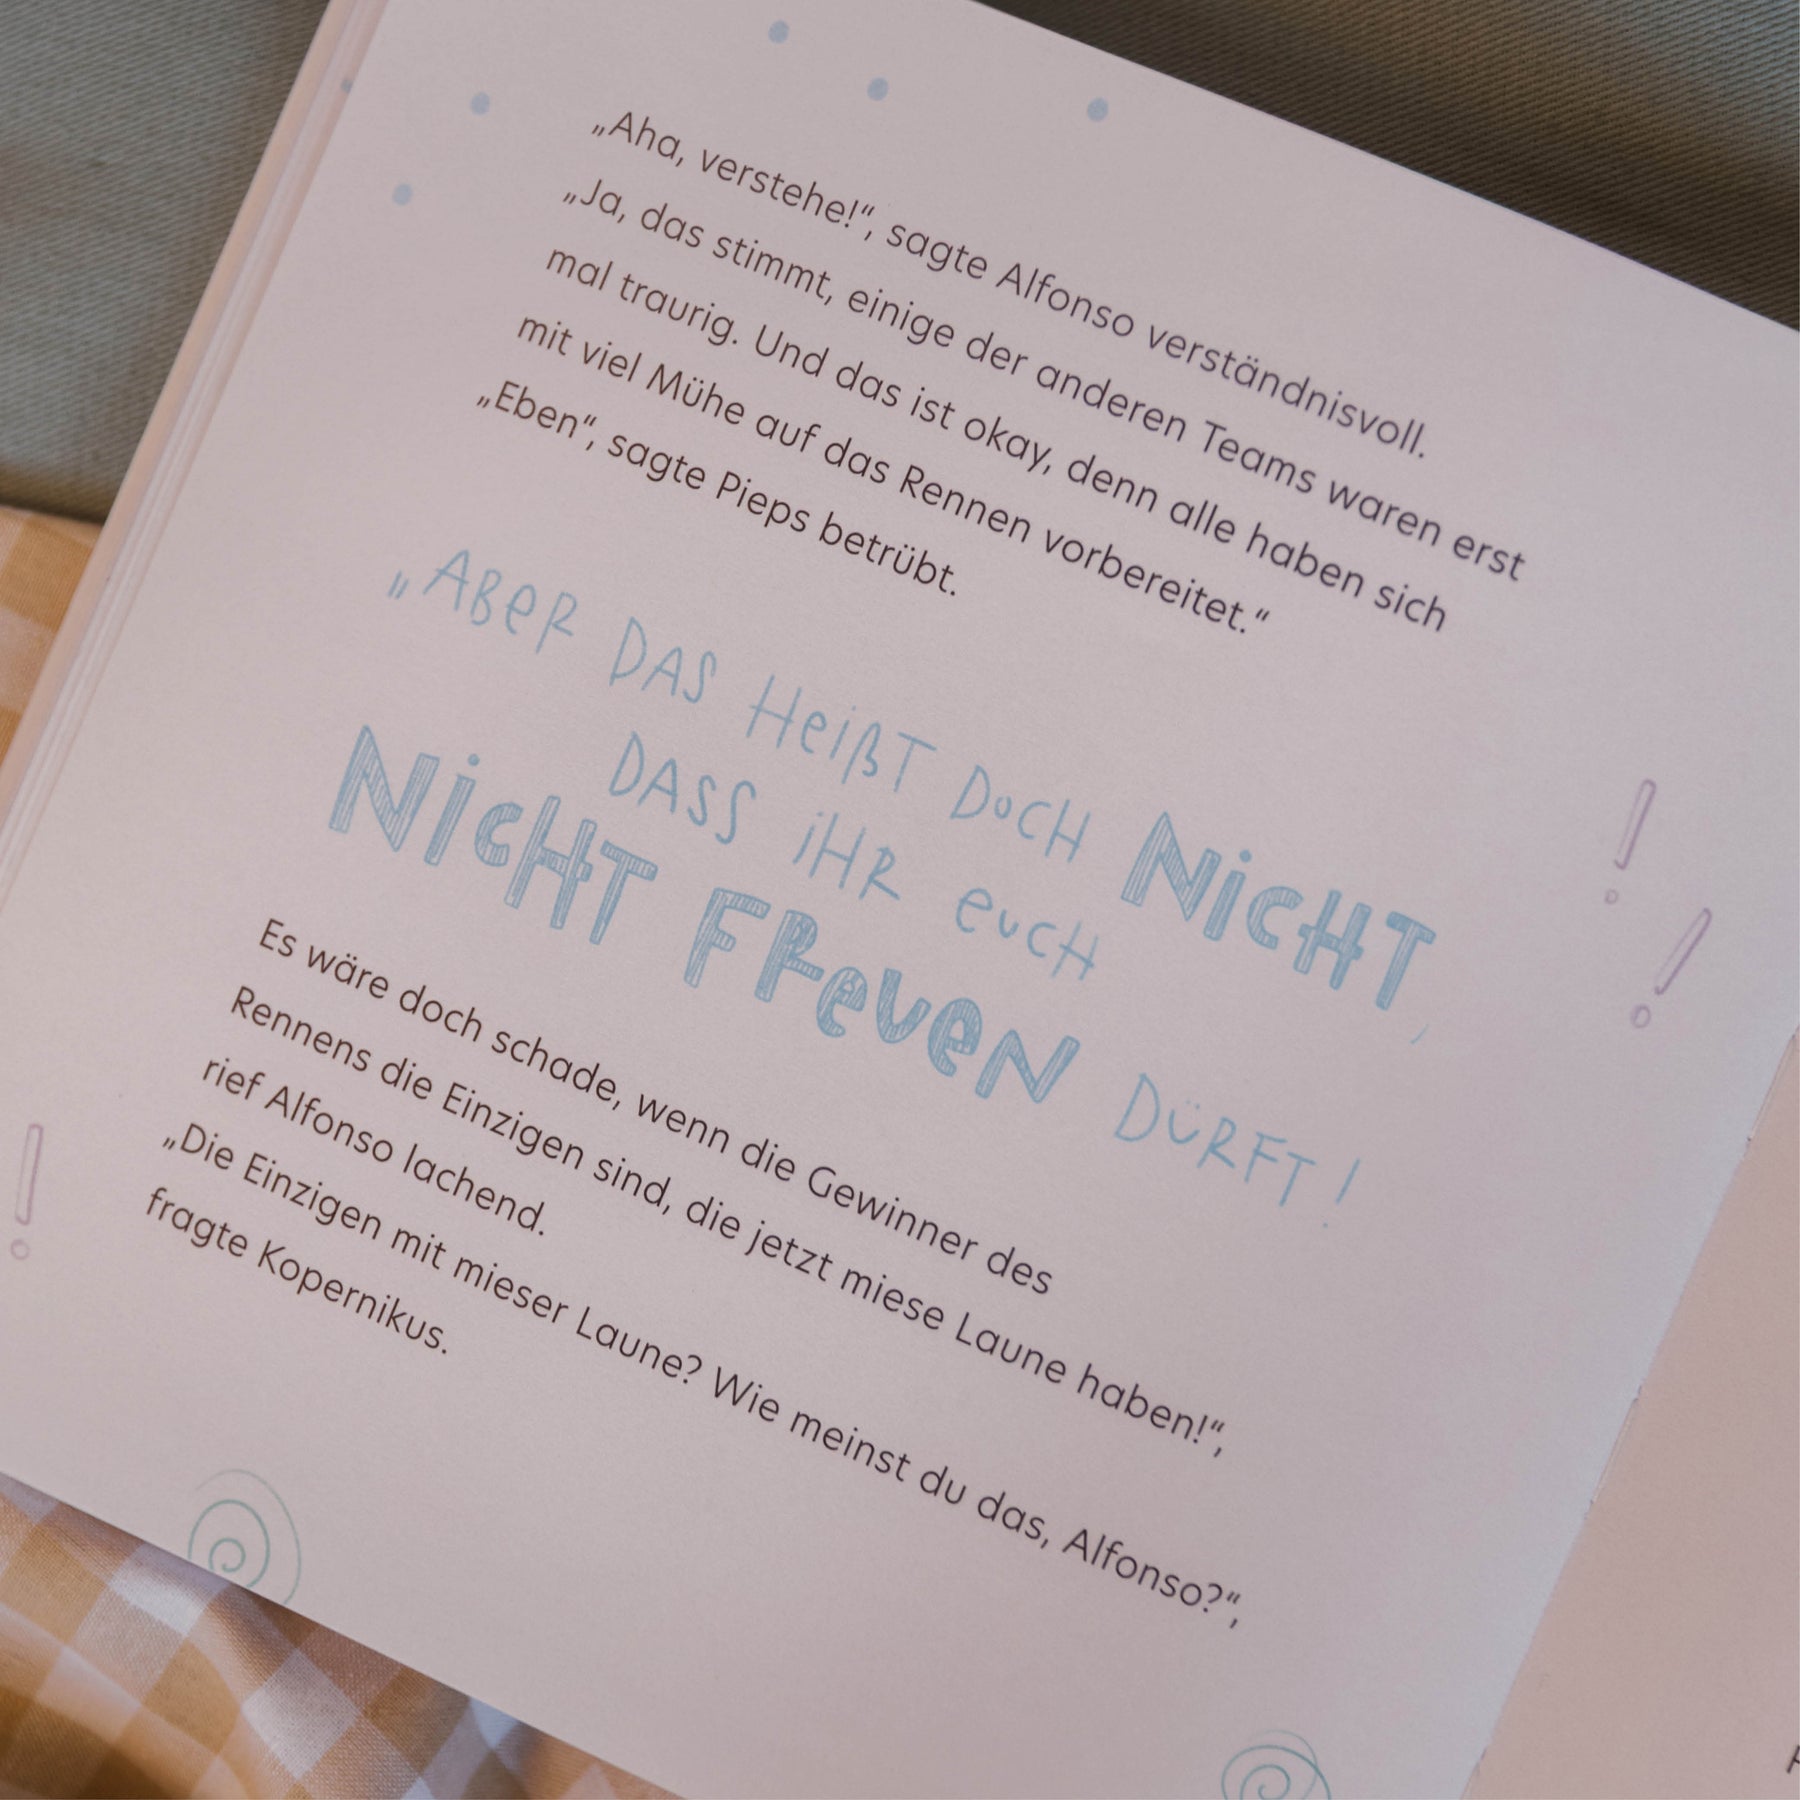 „Aha, verstehe!“, sagte Alfonso verständnisvoll.
„Ja, das stimmt, einige der anderen Teams waren erst
mal traurig. Und das ist okay, denn alle haben sich
mit viel Mühe auf das Rennen vorbereitet.“
„Eben“, sagte Pieps betrübt.
„ABeR DAS HeißT DoCH NiCHT,
DASS iHR euCH
NiCHT FReueN DÜRFT!
Es wäre doch schade, wenn die Gewinner des
Rennens die Einzigen sind, die jetzt miese Laune haben!“,
rief Alfonso lachend.
„Die Einzigen mit mieser Laune? Wie meinst du das, Alfonso?“,
fragte Kopernikus.